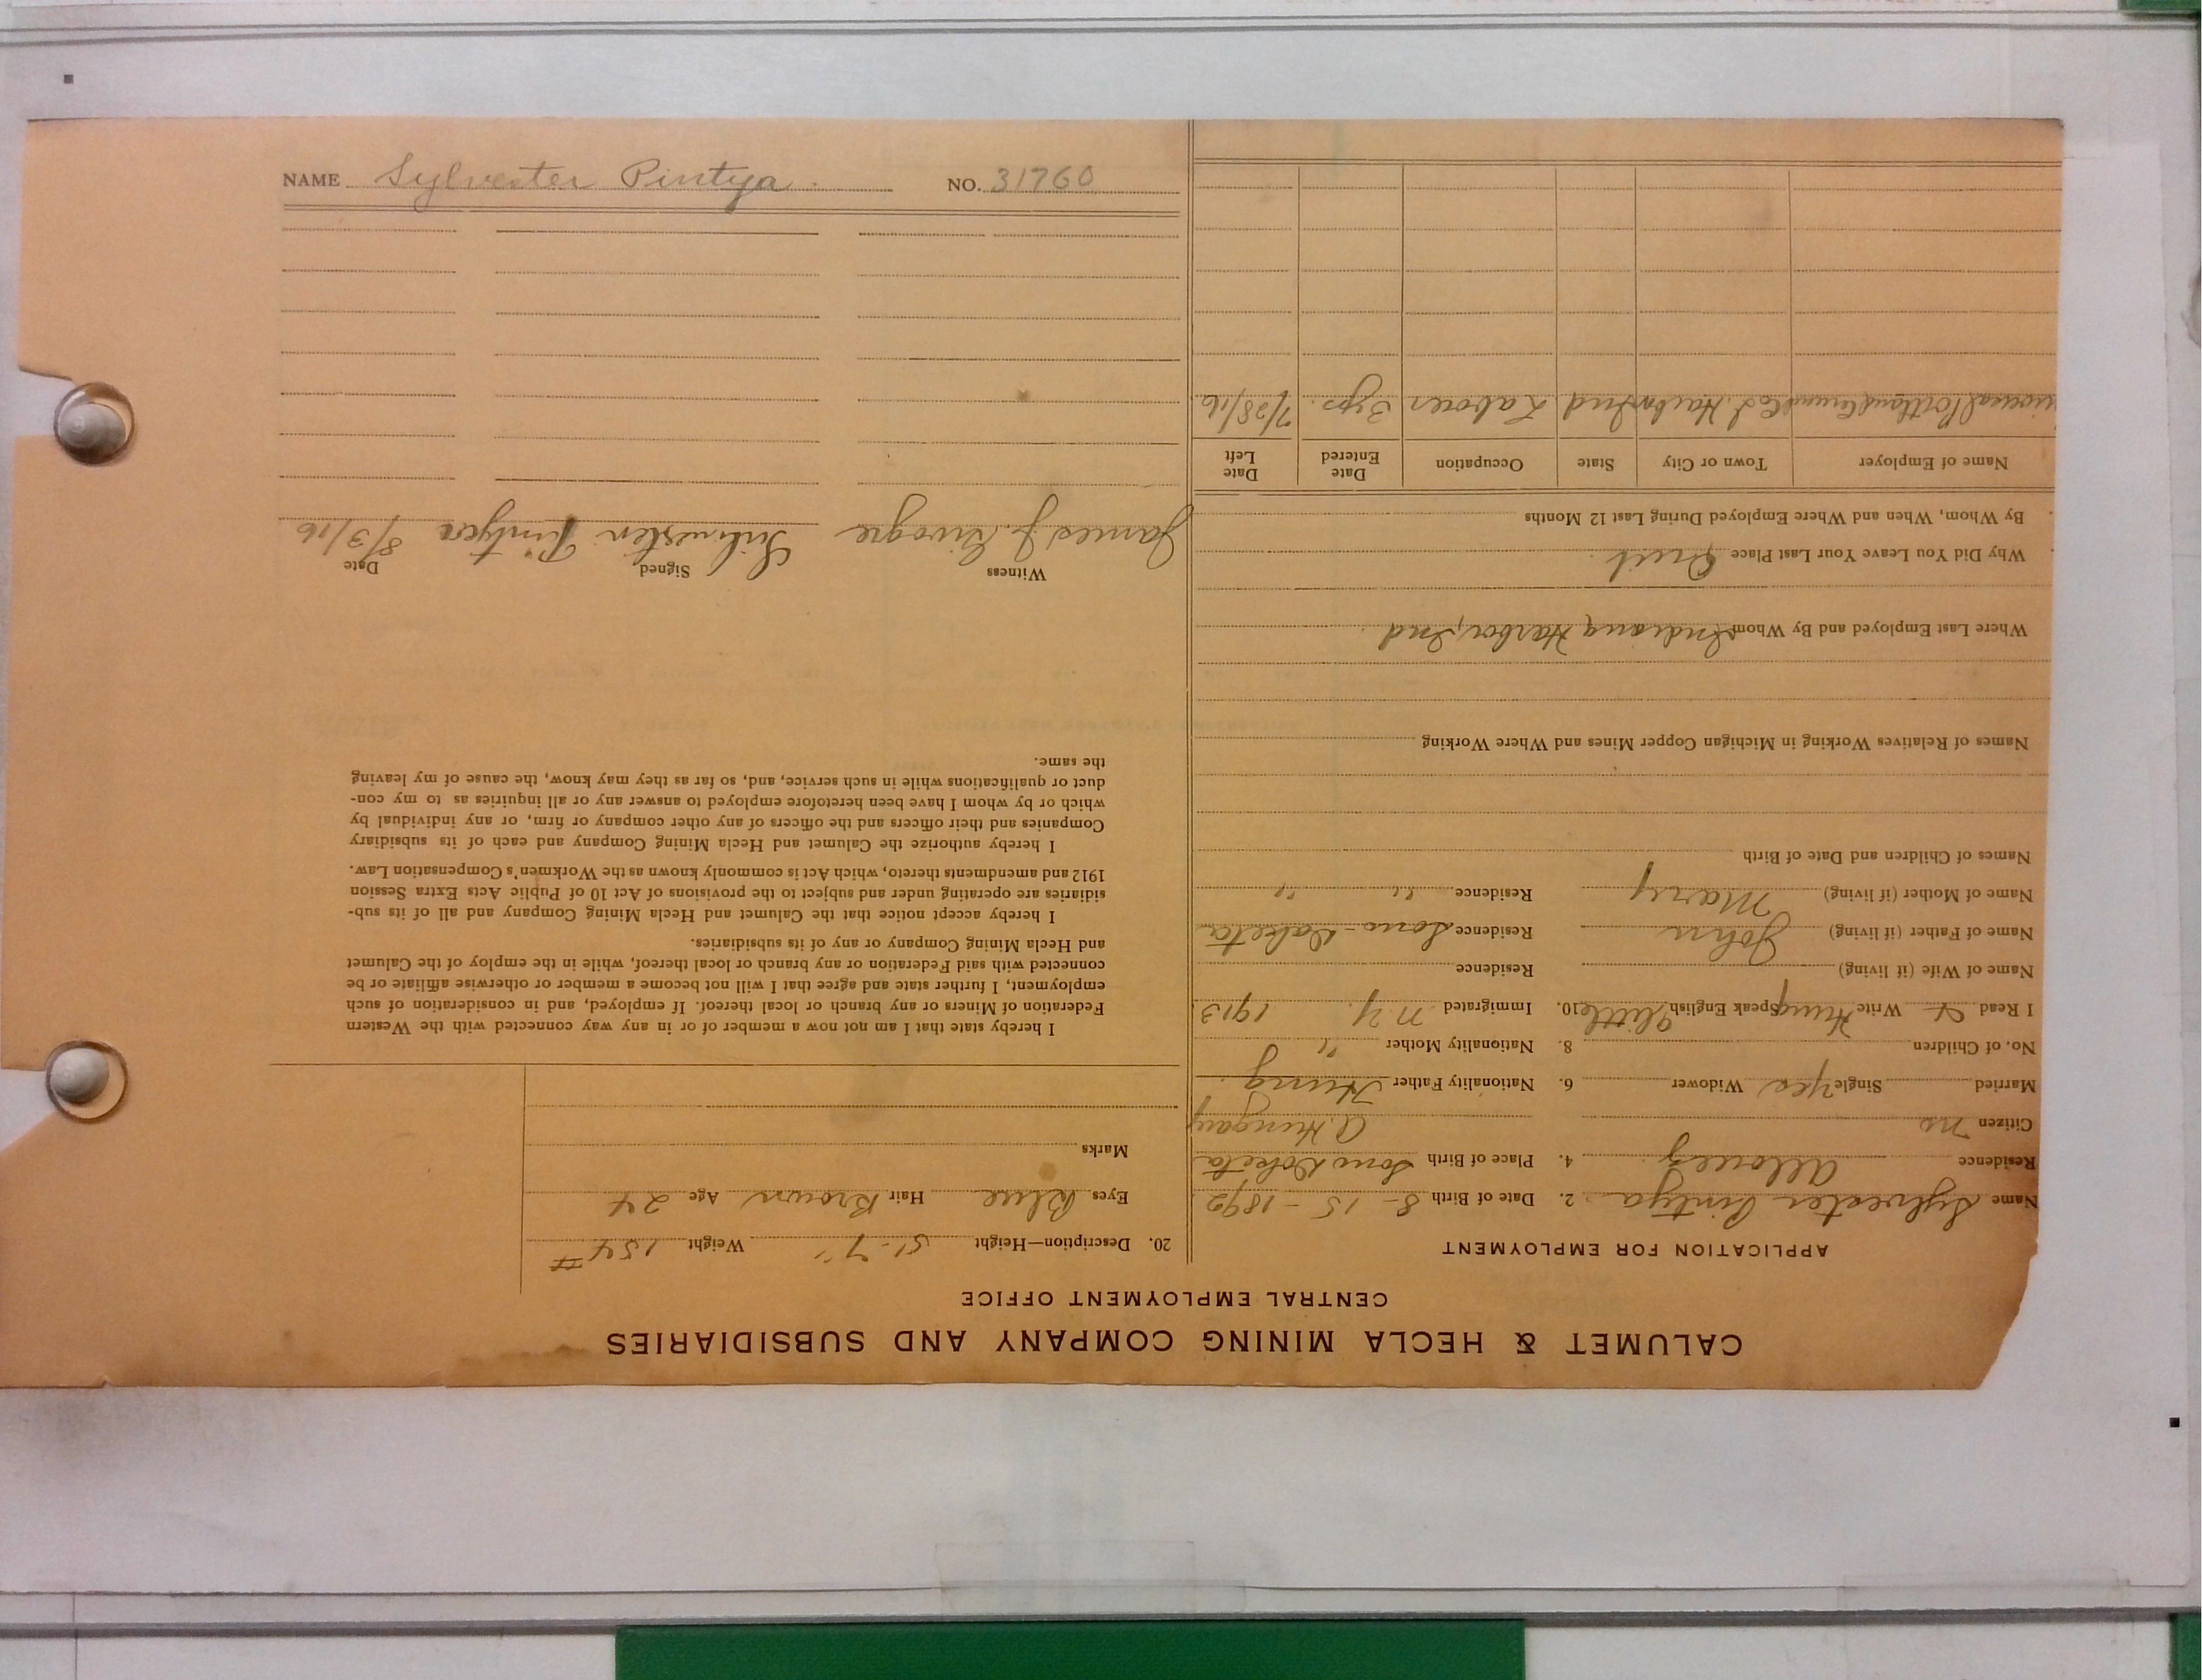 CALUMET & HECLA MINING COMPANY AND SUBSIDIARIES
CENTRAL EMPLOYMENT OFFICE
APPLICATION FOR EMPLOYMENT
Name Sylvester Pintya 2. Date of Birth 8-15-1892
Residence Allouez 4. Place of Birth Sons Doketa
Citizen no A. Hungary
Married Single Yes Widower 6. Nationality Father Hung
No. of Children 8. Nationality Mother "
I Read & Write Hung Speak English little 10. Immigrated N.Y. 1913
Name of Wife (if living) Residence
Name of Father (if living) John Residence Sons-Daketa
Name of Mother (if living) Mary Residence " "
Names of Children and Date of Birth
Names of Relatives Working in Michigan Copper Mines and Where Working
Where Last Employed and By Whom Indiana Harbor, Ind
Why Did You Leave Your Last Place Quit
By Whom, When and Where Employed During Last 12 Months
Name of Employer Town or City State Occupation Date Entered Date Left
Portland Cement Co I. Harbor Ind Laborer 3 yrs. 7/28/16
20. Description—Height 5'-7" Weight 154#
Eyes Blue Hair Brown Age 24
Marks
I hereby state that I am not now a member of or in any way connected with the Western
Federation of Miners or any branch or local thereof. If employed, and in consideration of such
employment, I further state and agree that I will not become a member or otherwise affiliate or be
connected with said Federation or any branch or local thereof, while in the employ of the Calumet
and Hecla Mining Company or any of its subsidiaries.
I hereby accept notice that the Calumet and Hecla Mining Company and all of its sub-
sidiaries are operating under and subject to the provisions of Act 10 of Public Acts Extra Session
1912 and amendments thereto, which Act is commonly known as the Workmen's Compensation Law.
I hereby authorize the Calumet and Hecla Mining Company and each of its subsidiary
Companies and their officers and the officers of any other company or firm, or any individual by
which or by whom I have been heretofore employed to answer any or all inquiries as to my con-
duct or qualifications while in such service, and, so far as they may know, the cause of my leaving
the same.
Witness Signed Date
James J. Silvester Pintyea 8/3/16
NAME Sylvester Pintya. NO. 31760